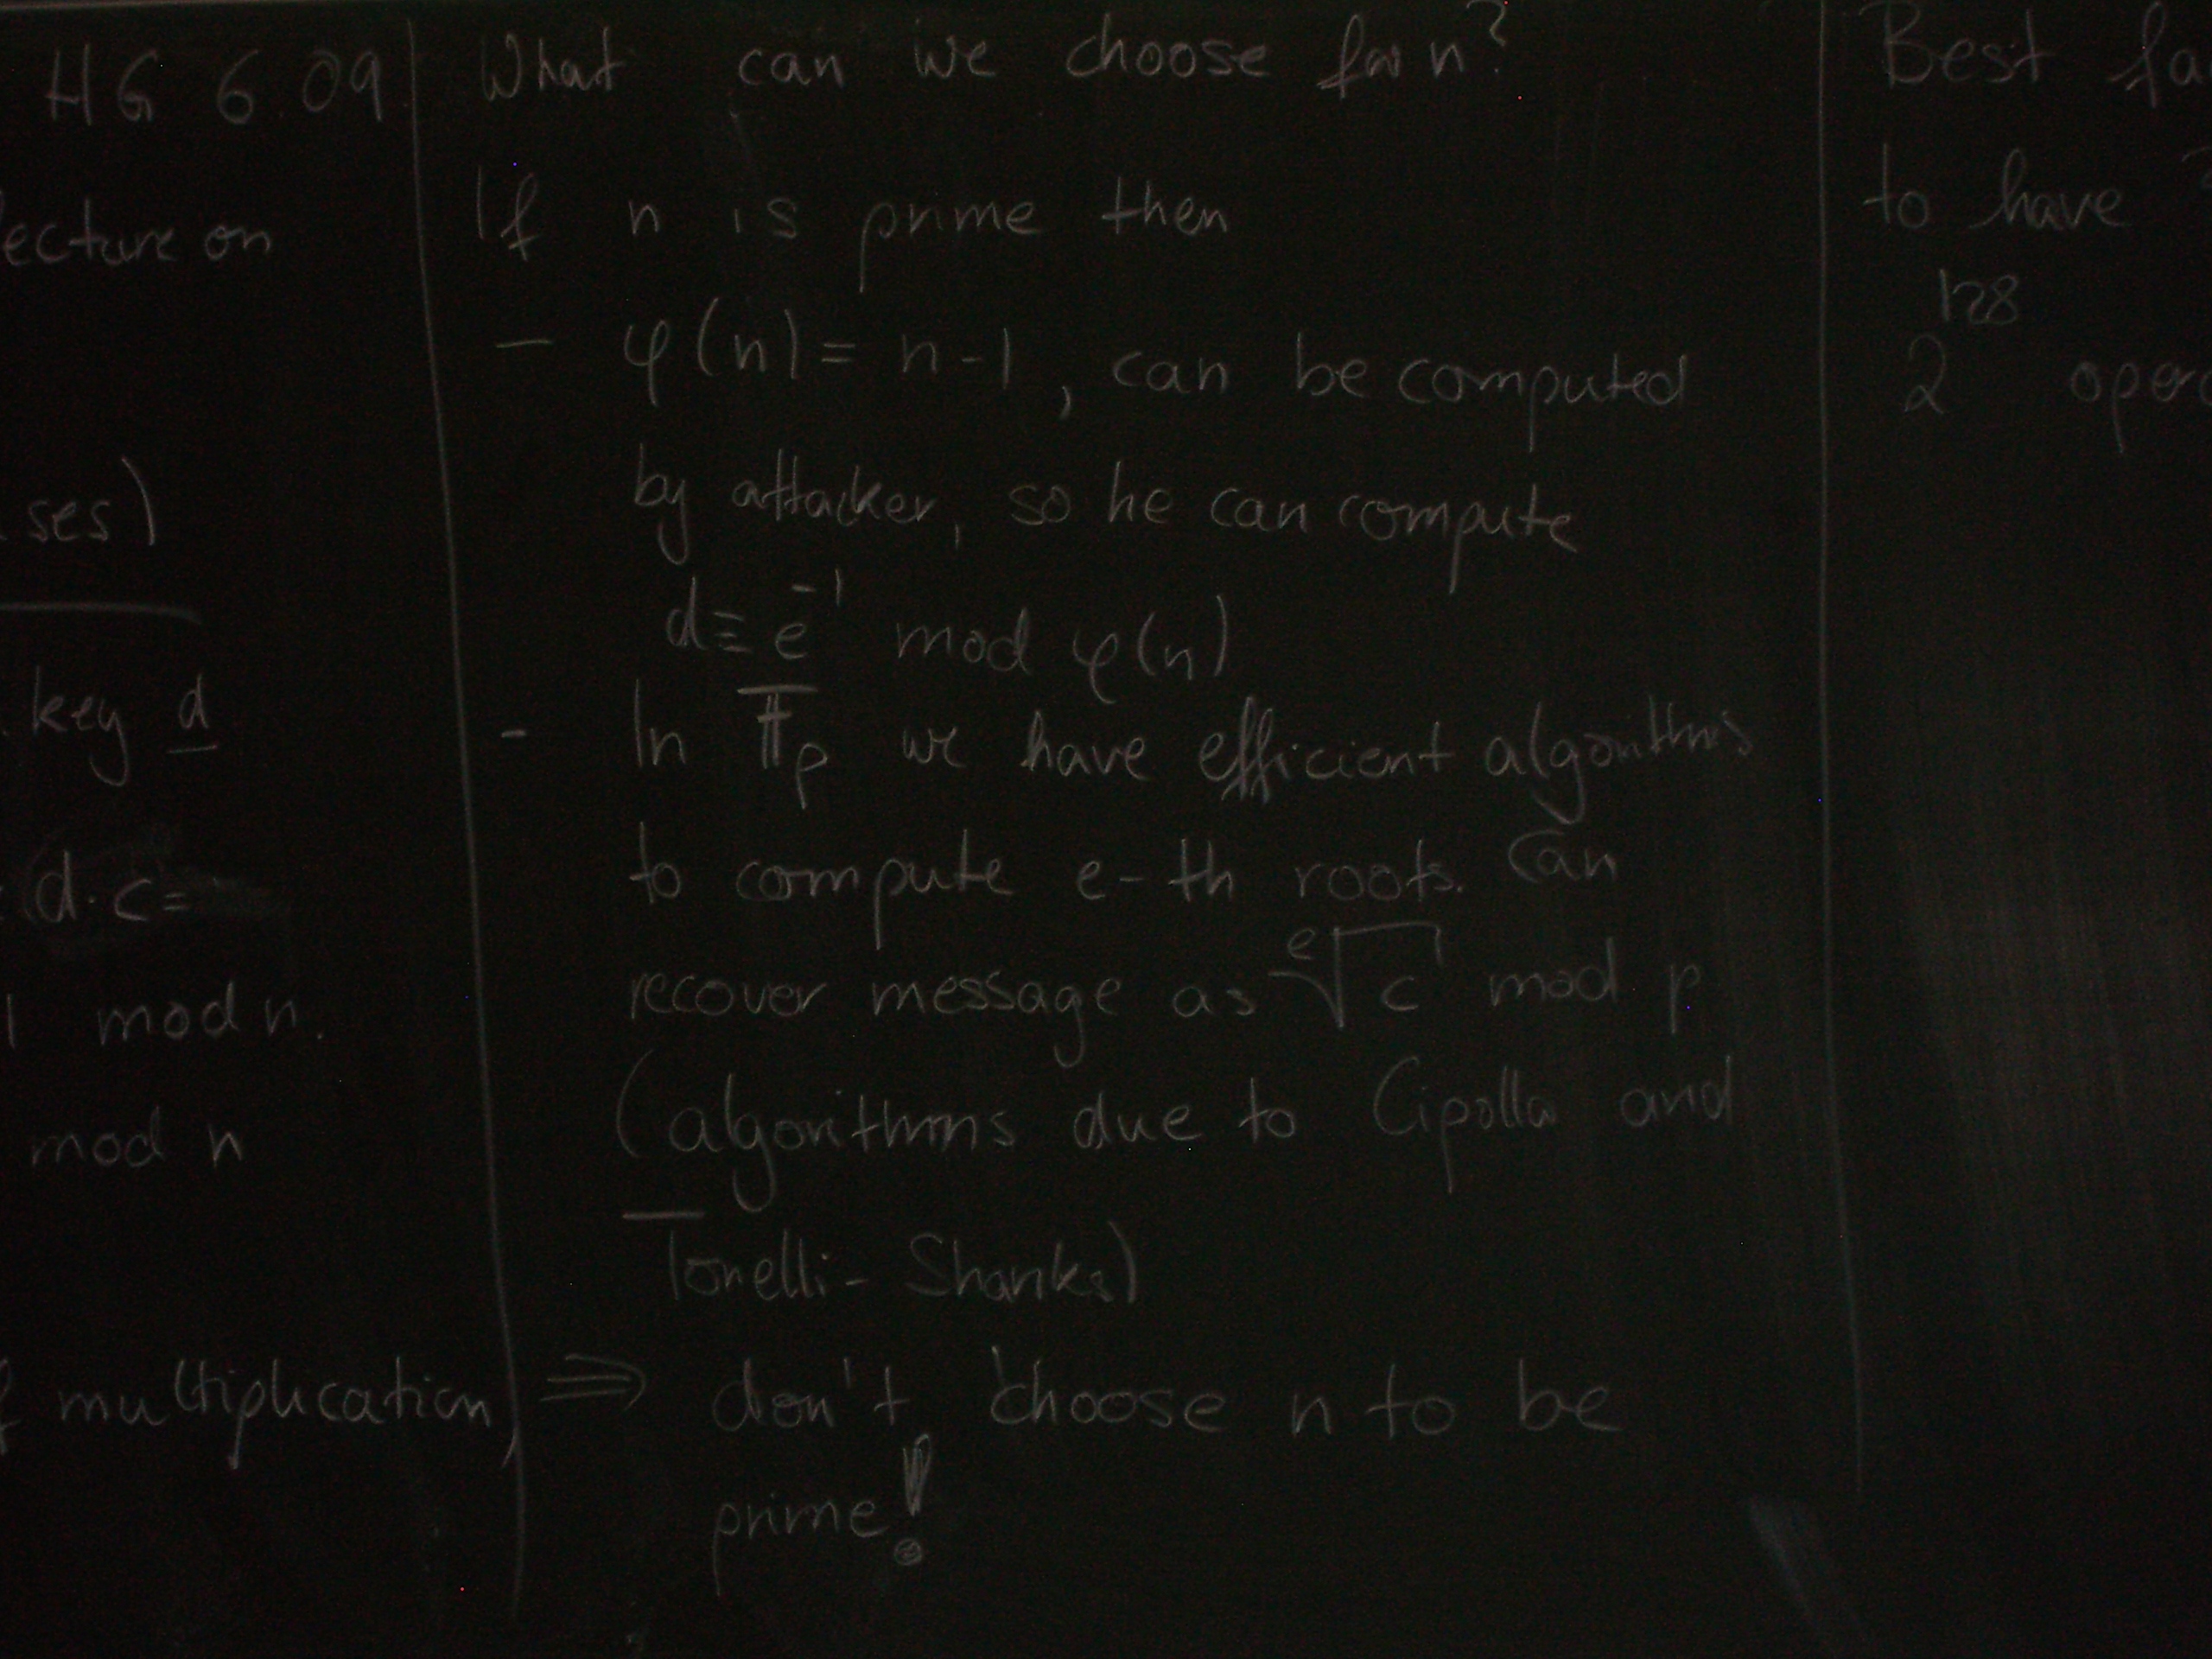 HG 6.09
ecture on
ses)
key d
d·c=
1 mod n.
mod n
multiplication,
What can we choose for n?
If n is prime then
- φ(n) = n-1, can be computed
by attacker, so he can compute
d ≡ e⁻¹ mod φ(n)
- In 𝔽ₚ we have efficient algorithms
to compute e-th roots. Can
recover message as ᵉ√c mod p
(algorithms due to Cipolla and
Tonelli-Shanks)
⇒ don't choose n to be
prime!
Best fa
to have
2¹²⁸ oper